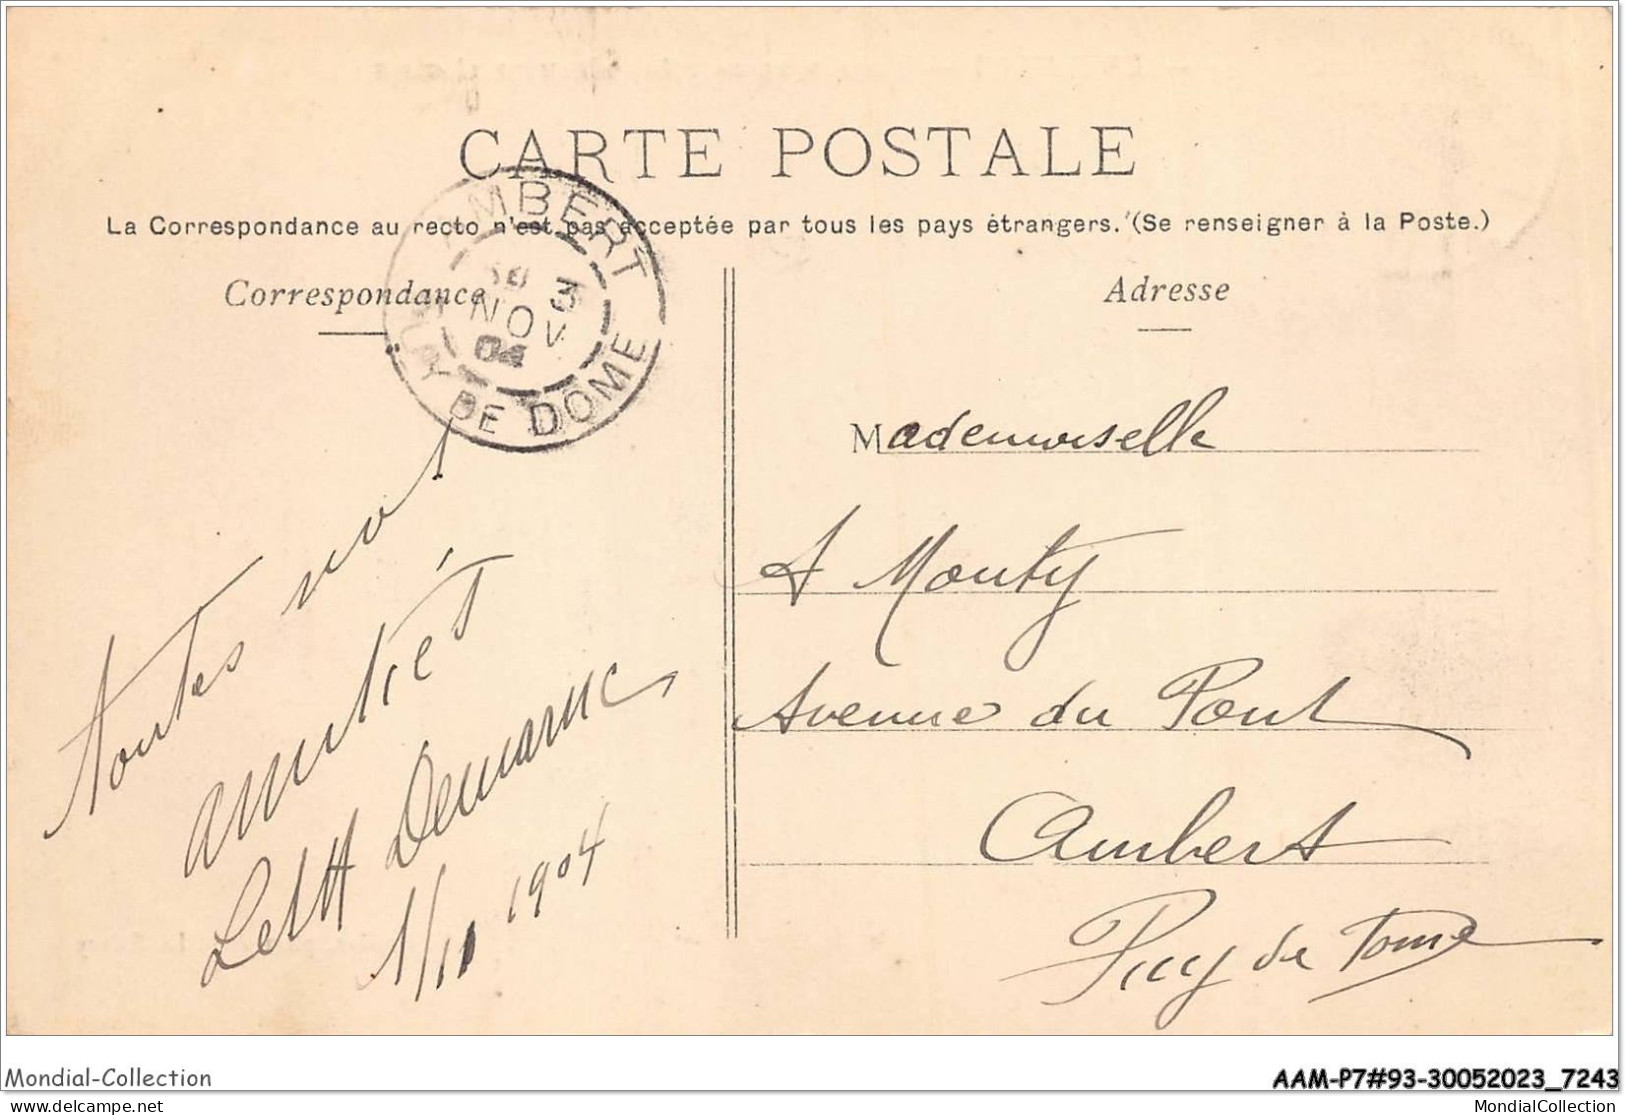 CARTE POSTALE
La Correspondance au recto n'est pas acceptée par tous les pays étrangers. (Se renseigner à la Poste.)
Correspondance
AMBERT
3
NOV
04
PUY DE DOME
Toutes nos
amitiés
1/11 1904
Adresse
Mademoiselle
A Mouty
Avenue du Pont
Ambert
Puy de Dome
Mondial-Collection
AAM-P7#93-30052023_7243
delcampe.net
MondialCollection